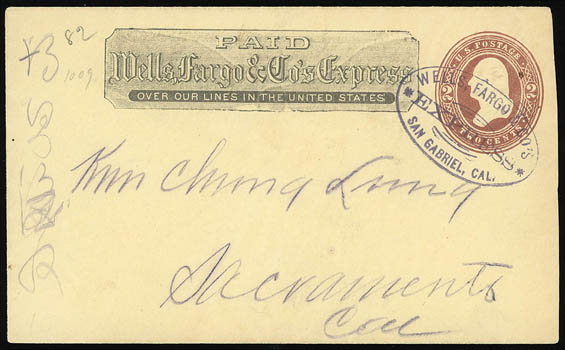 82
1009
PAID
Wells, Fargo & Co's Express
OVER OUR LINES IN THE UNITED STATES
U.S. POSTAGE
2 2
TWO CENTS
WELLS, FARGO & CO'S
EXPRESS
SAN GABRIEL, CAL.
Kim Chung Lung
Sacramento
Cal